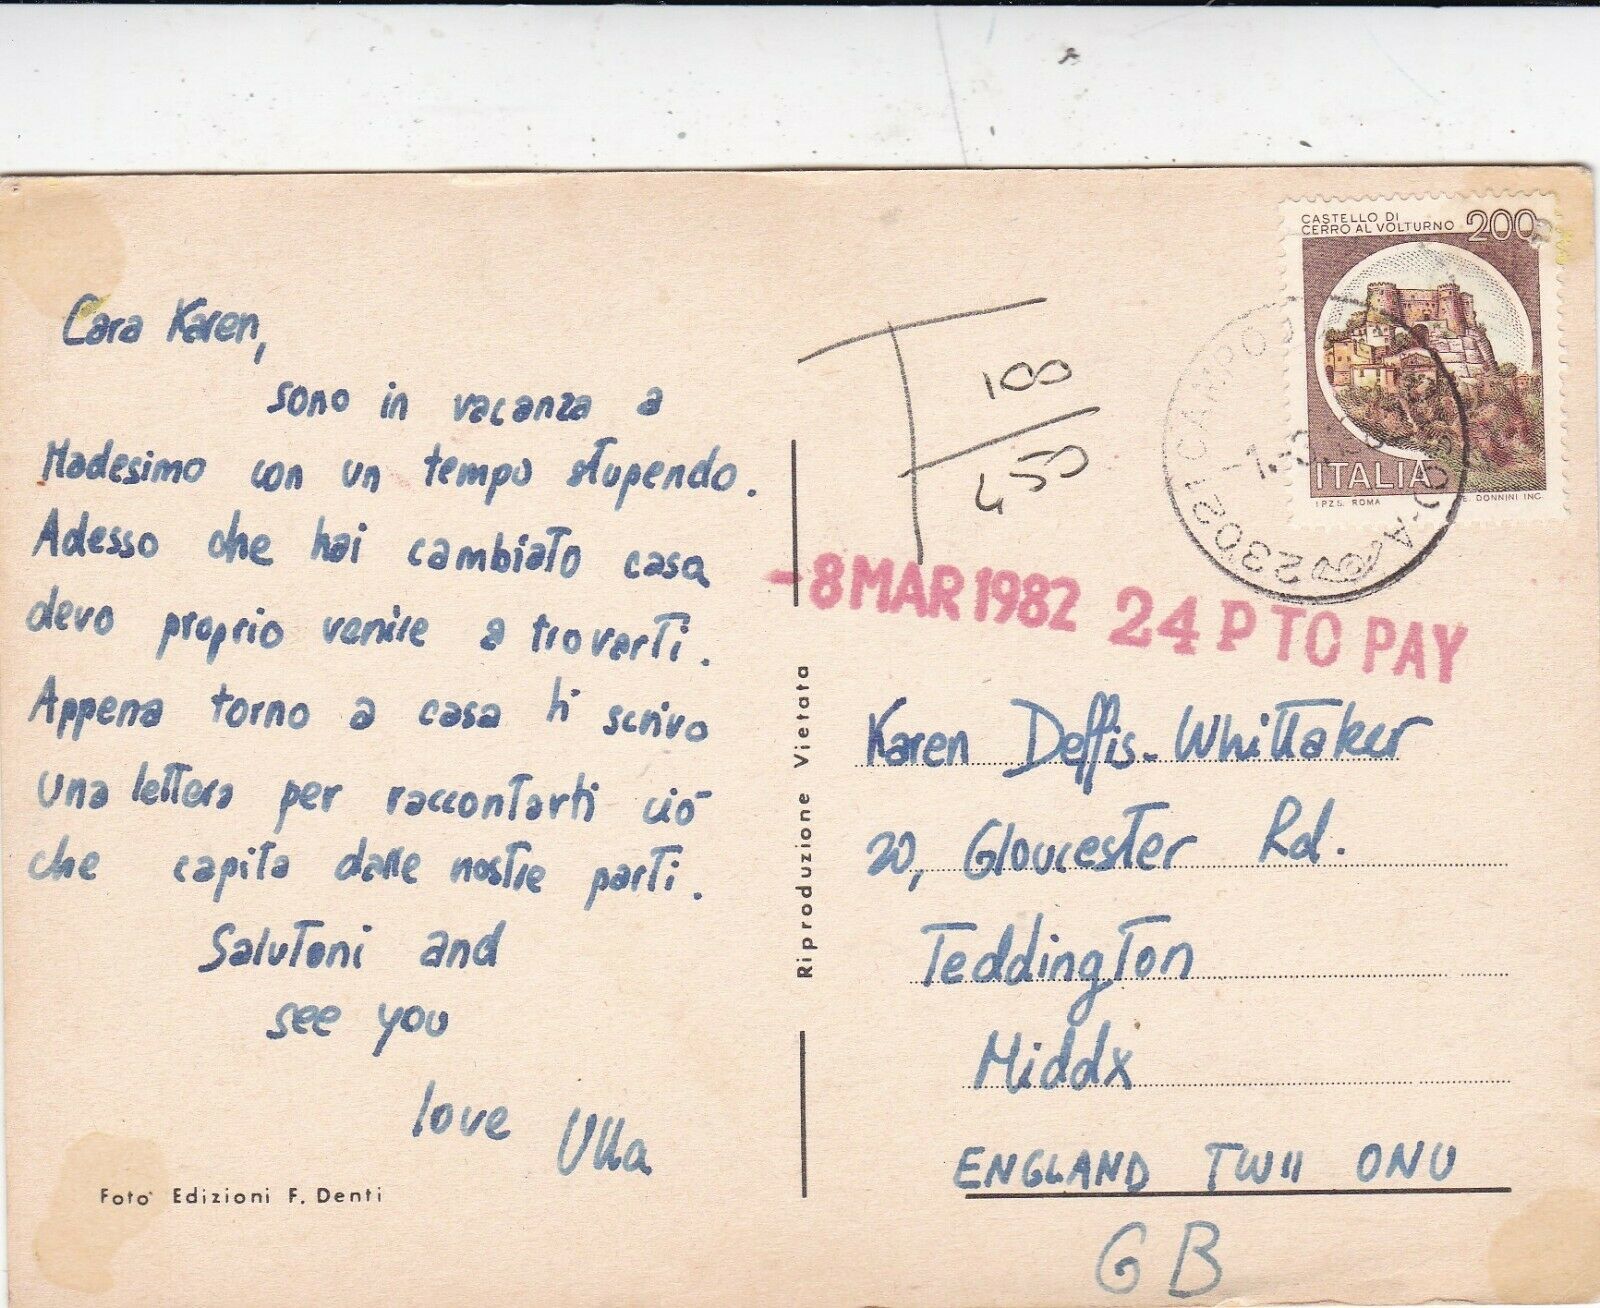 Cara Karen,
sono in vacanza a
Madesimo con un tempo stupendo.
Adesso che hai cambiato casa
devo proprio venire a trovarti.
Appena torno a casa ti scrivo
una lettera per raccontarti ciò
che capita dalle nostre parti.
Salutoni and
see you
love Ulla
Foto Edizioni F. Denti
Riproduzione Vietata
T 100
450
CASTELLO DI
CERRO AL VOLTURNO 200
ITALIA
I.P.Z.S. ROMA E. DONNINI INC.
23021 CAMPO
-8 MAR 1982 24 P TO PAY
Karen Deffis-Whittaker
20, Gloucester Rd.
Teddington
Middx
ENGLAND TW11 ONU
GB